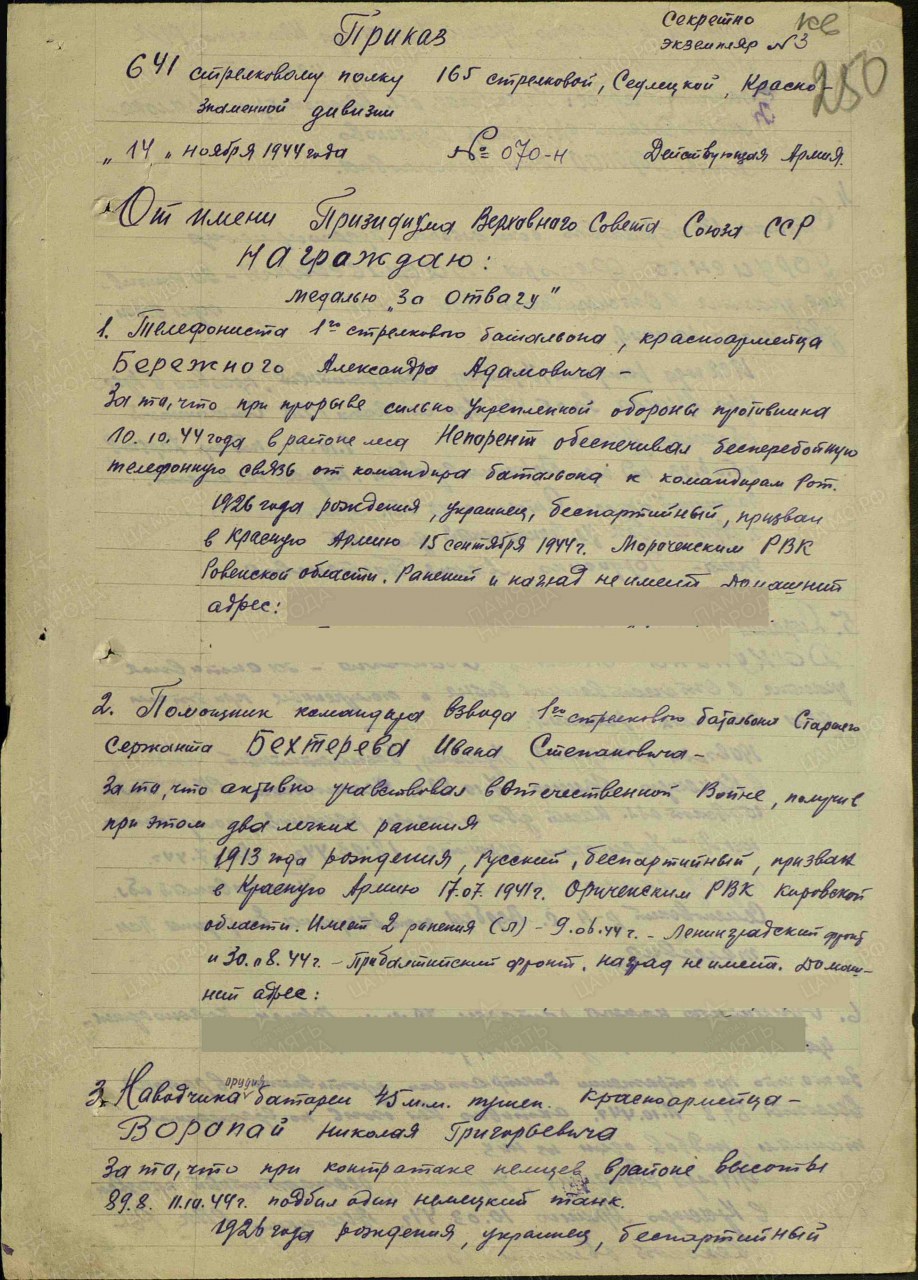 Приказ
Секретно
экземпляр №3
250
641 стрелковому полку 165 стрелковой, Седлецкой, Красно-
знаменной дивизии
"14" ноября 1944 года № 070-н Действующая Армия.
От имени Призидиума Верховного Совета Союза ССР
Награждаю:
медалью "За отвагу"
1. Телефониста 1го стрелкового баталъона, красноармейца
Бережного Александра Адамовича –
За то, что при прорыве сильно укрепленной обороны противника
10.10.44 года в районе леса Непорент обеспечивал бесперебойную
телефонную связь от командира батальона к командирам рот.
1926 года рождения, украинец, беспартийный, призван
в Красную Армию 15 сентября 1944 г. Мороченским РВК
Ровенской области. Ранений и наград не имеет Домашний
адрес:
2. Помощник командира взвода 1го стрелкового батальона Старшего
сержанта Бехтерева Ивана Степановича –
За то, что активно учавствовал в Отечественной Войне, получив
при этом два легких ранения
1913 года рождения, Русский, беспартийный, призван
в Красную Армию 17.07.1941 г. Ориченским РВК Кировской
области. Имеет 2 ранения (л) – 9.06.44 г. – Ленинградский фронт
и 30.08.44 г. – Прибалтийский фронт. Наград не имеет. Домаш-
ний адрес:
3. Наводчика орудия батареи 45 м.м. пушек. красноармейца –
Ворапай Николая Григорьевича
За то, что при контратаке немцев в районе высоты
89.8. 11.10.44 г. подбил один немецкий танк.
1926 года рождения, украинец, беспартийный